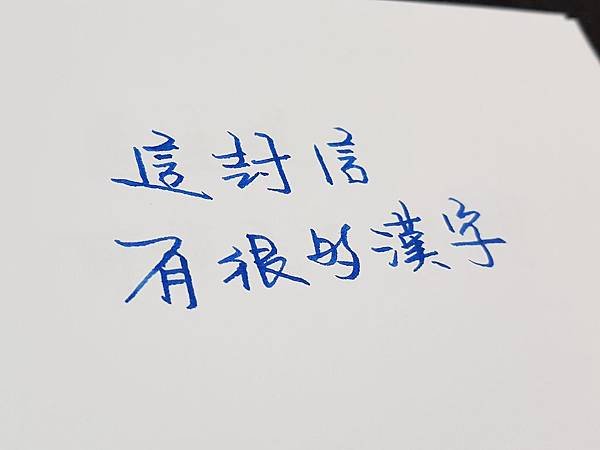 這封信
有很的漢字